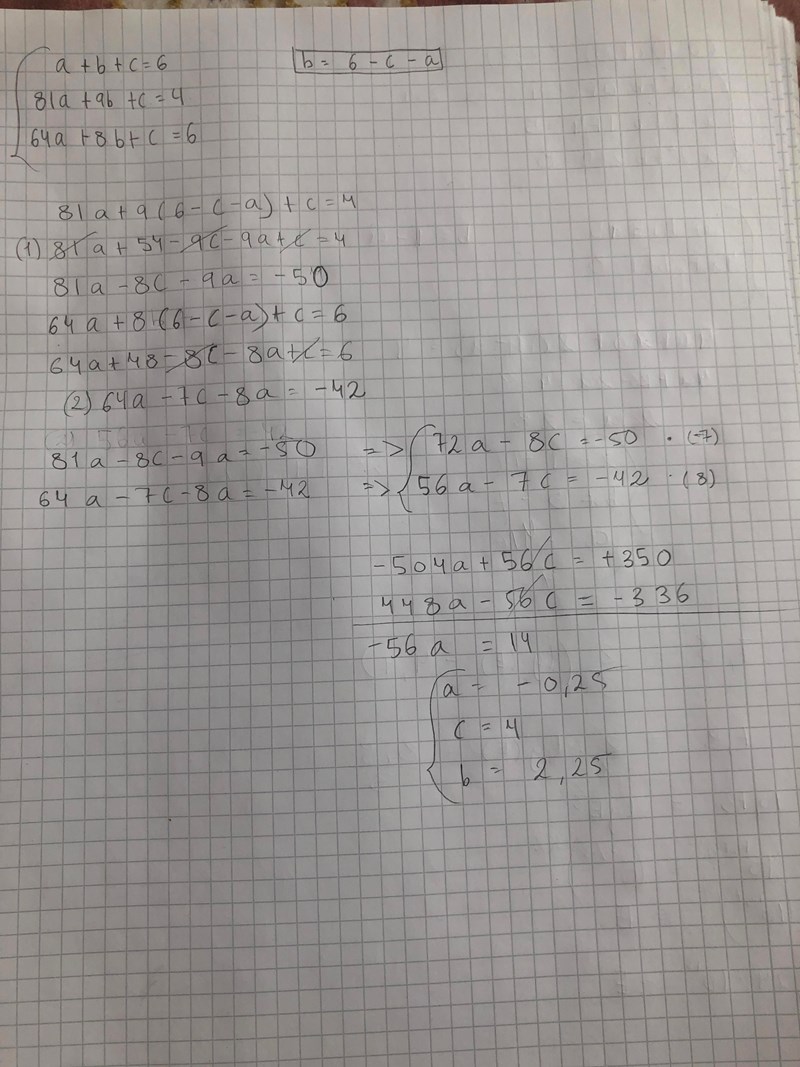 a + b + c = 6
b = 6 - c - a
81a + 9b + c = 4
64a + 8b + c = 6
81a + 9(6 - c - a) + c = 4
(1) 81a + 54 - 9c - 9a + c = 4
81a - 8c - 9a = -50
64a + 8·(6 - c - a) + c = 6
64a + 48 - 8c - 8a + c = 6
(2) 64a - 7c - 8a = -42
81a - 8c - 9a = -50 => 72a - 8c = -50 · (-7)
64a - 7c - 8a = -42 => 56a - 7c = -42 · (8)
-504a + 56c = +350
448a - 56c = -336
-56a = 14
a = -0,25
c = 4
b = 2,25